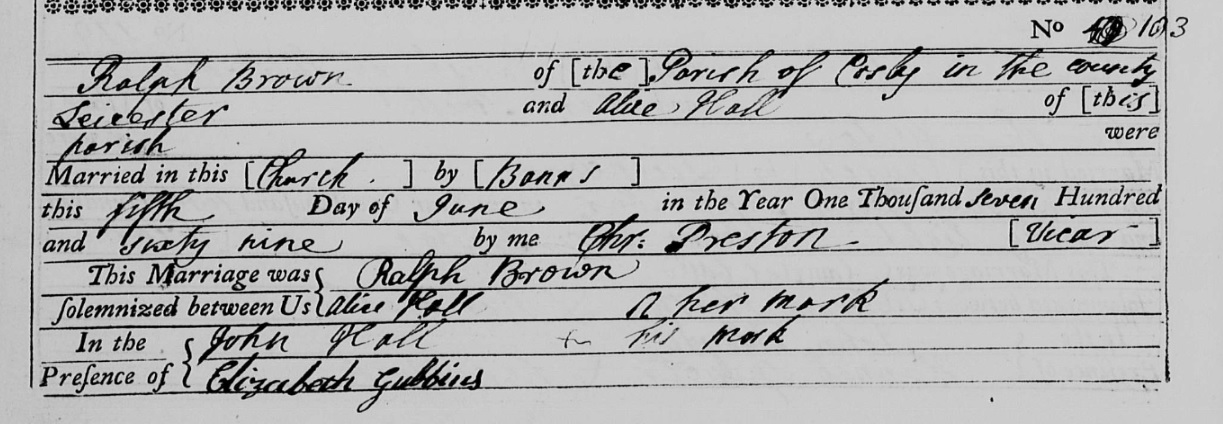 No 103
Ralph Brown of [the] Parish of Cosby in the county
Leicester and Alice Hall of [this]
parish were
Married in this [Church.] by [Banns]
this fifth Day of June in the Year One Thouſand seven Hundred
and sixty nine by me Chr. Preston [Vicar]
This Marriage was { Ralph Brown
ſolemnized between Us { Alice Hall her mark
In the { John Hall + his mark
Preſence of { Elizabeth Gubbins